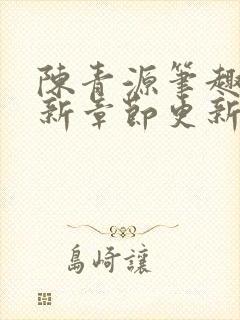 陳青源筆趣
新章節更新
島崎讓